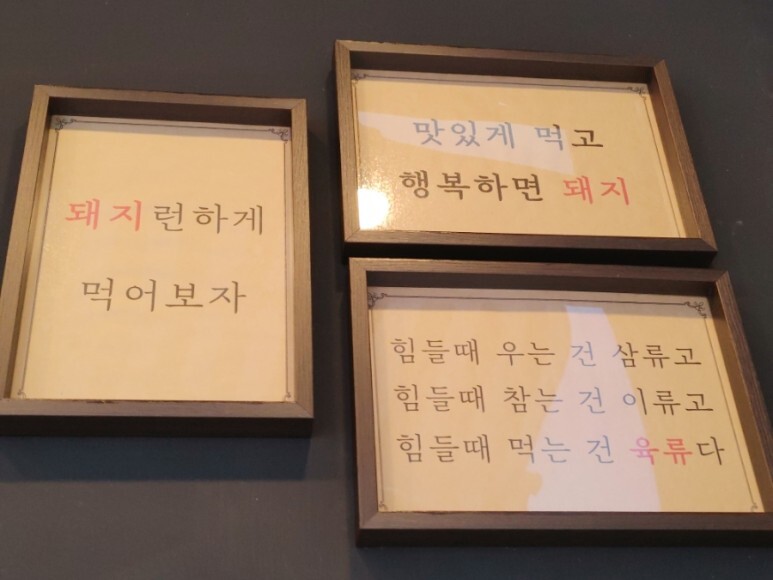 돼지런하게
먹어보자
맛있게 먹고
행복하면 돼지
힘들때 우는 건 삼류고
힘들때 참는 건 이류고
힘들때 먹는 건 육류다